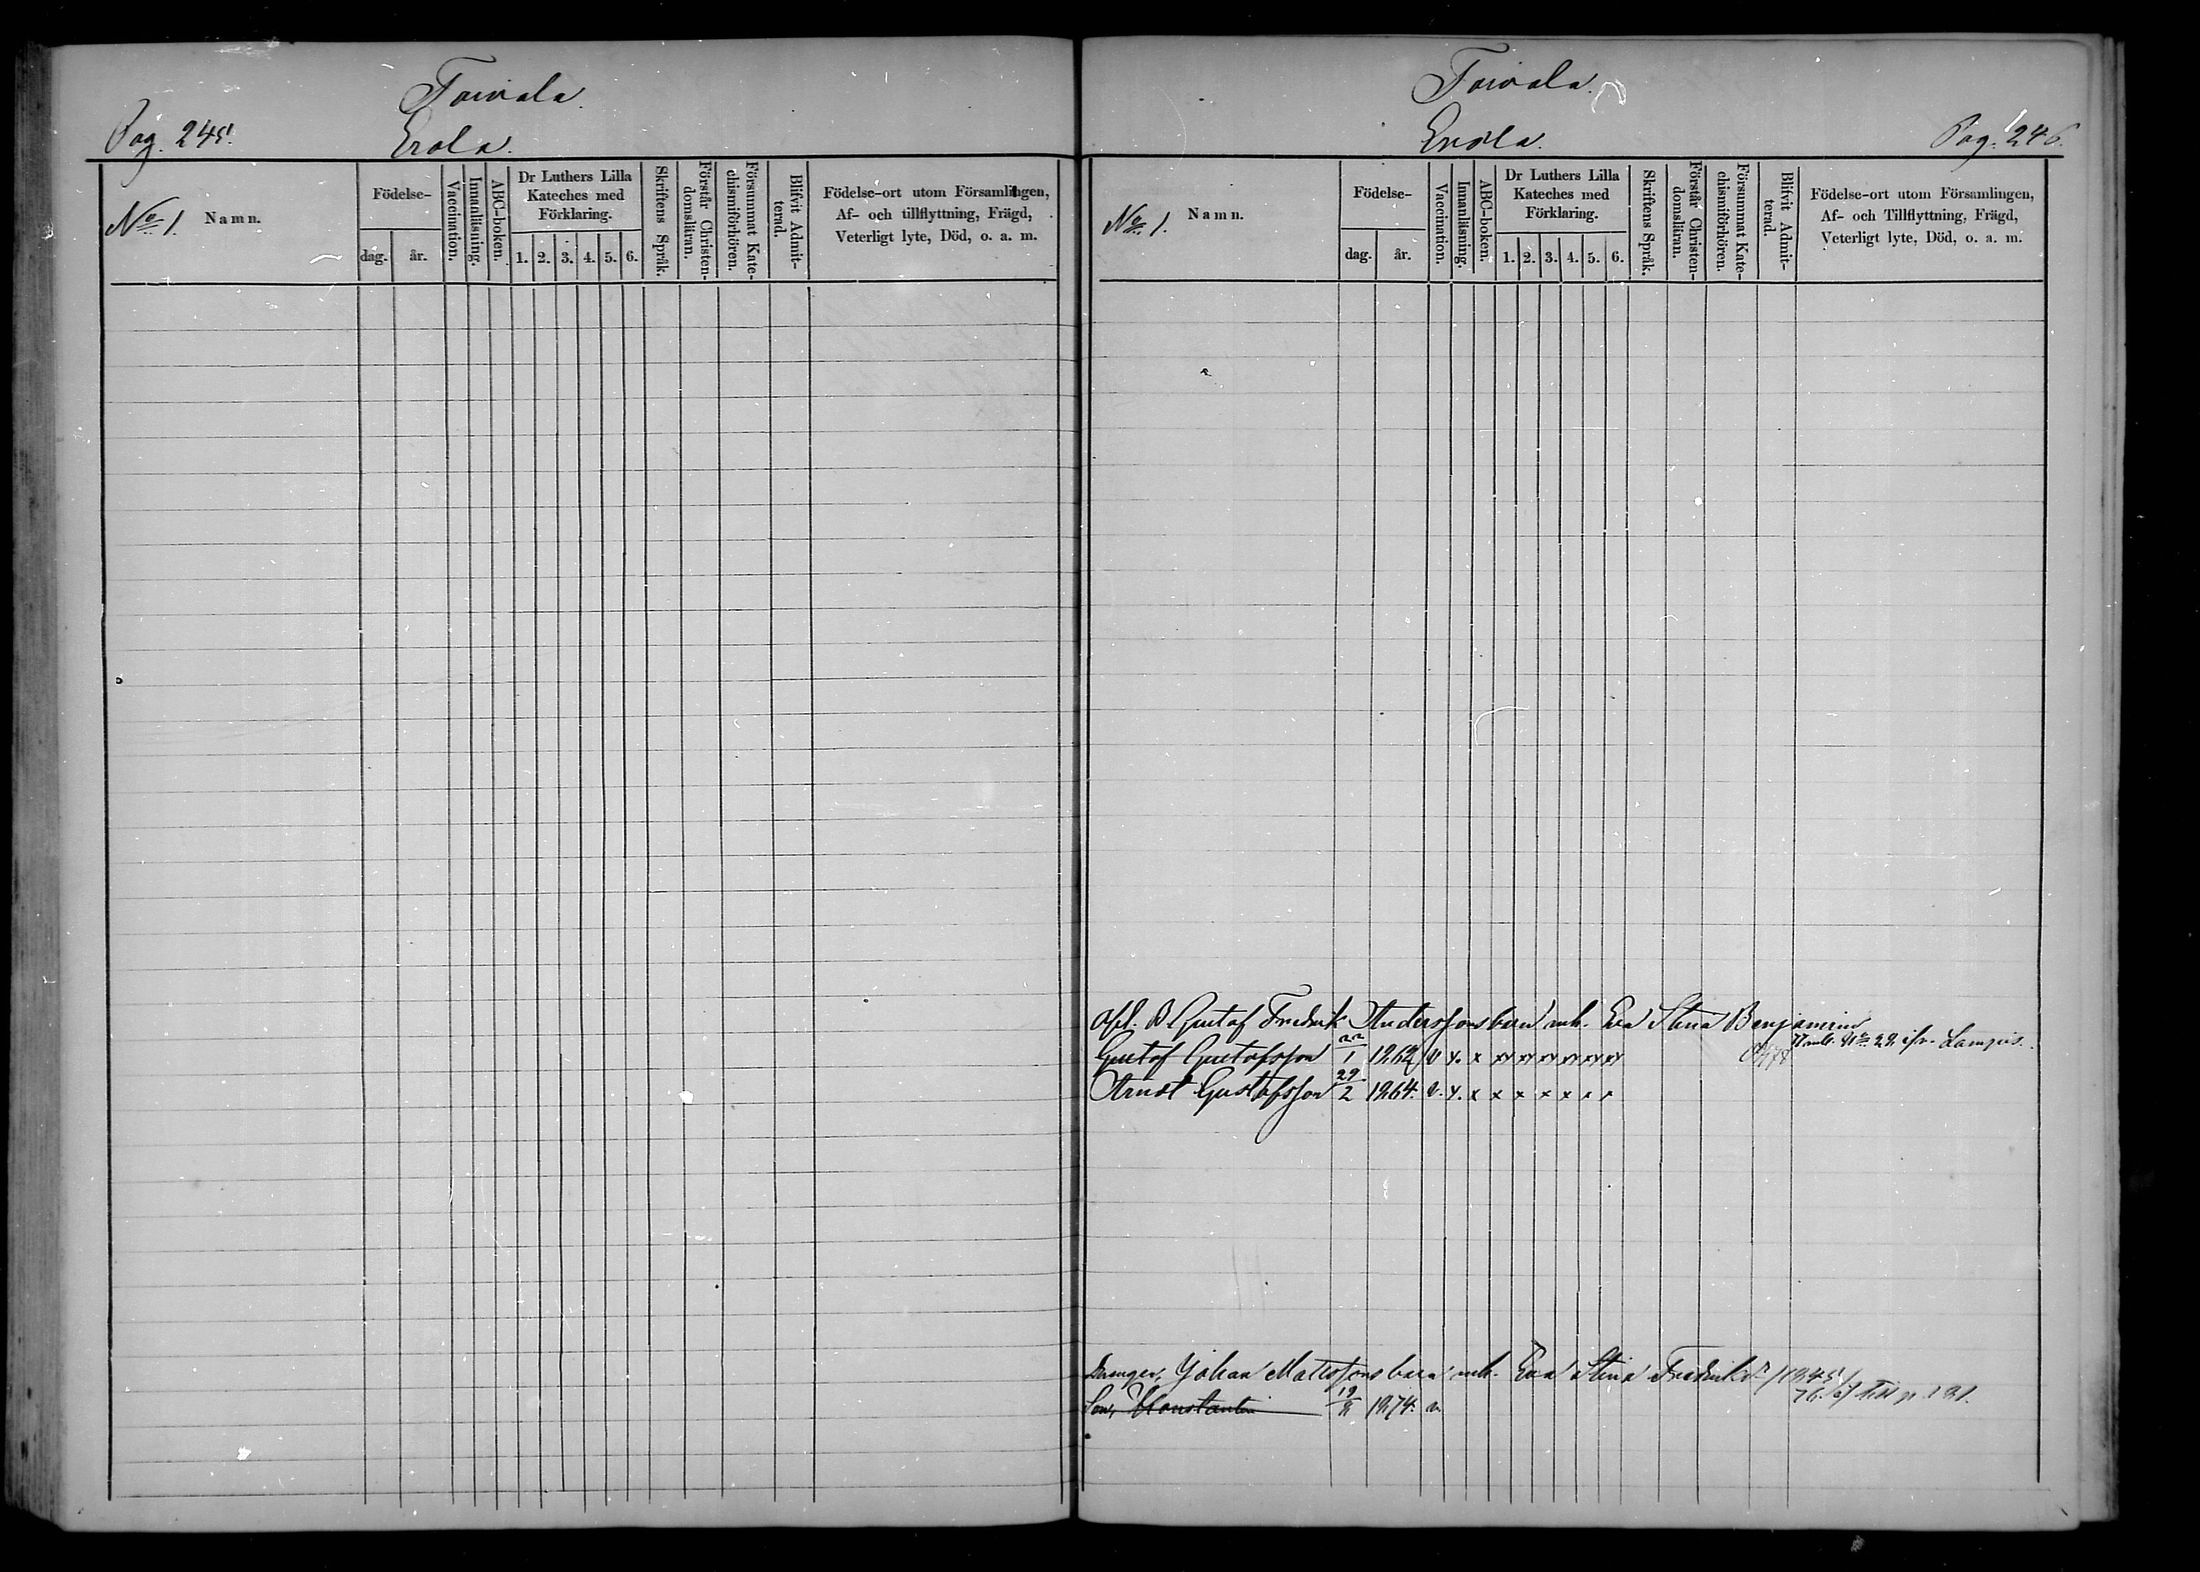 Toivala.
Pag. 245.
Erola.
No 1.
Namn.
Födelse-
dag.
år.
Vaccination.
Innanläsning.
ABC-boken.
Dr Luthers Lilla
Kateches med
Förklaring.
1. 2. 3. 4. 5. 6.
Skriftens Språk.
Förstår Christen-
domsläran.
Försummat Kate-
chismiförhören.
Blifvit Admit-
terad.
Födelse-ort utom Församlingen,
Af- och tillflyttning, Frägd,
Veterligt lyte, Död, o. a. m.
Toivala.
Erola.
Pag. 246.
No 1.
Namn.
Födelse-
dag.
år.
Vaccination.
Innanläsning.
ABC-boken.
Dr Luthers Lilla
Kateches med
Förklaring.
1. 2. 3. 4. 5. 6.
Skriftens Språk.
Förstår Christen-
domsläran.
Försummat Kate-
chismiförhören.
Blifvit Admit-
terad.
Födelse-ort utom Församlingen,
Af- och Tillflyttning, Frägd,
Veterligt lyte, Död, o. a. m.
Afl. B Gustaf Fredrik Anderssons barn mh. Eva Stina Benjamins
Gustaf Gustafsson 22/1 1862 v x. x xx xx xx xx xx xx
Arndt Gustafsson 29/2 1864. v. x. x x x x x x x
Johan Matssons barn mh. Eva Stina Fredriksdr /1845/
Son, Konstantin 1874. v. 76.